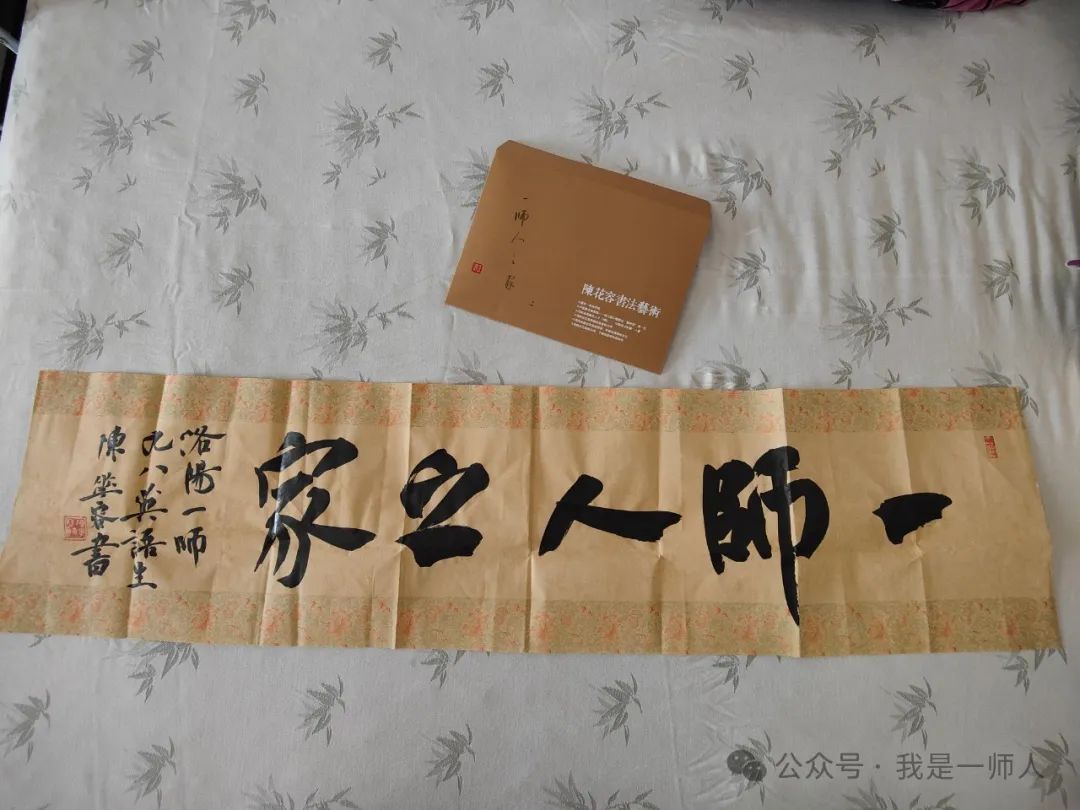 一師人之家
陳花容書法藝術
一師人之家
洛陽一师
九八英語生
陳華容書
公众号·我是一师人